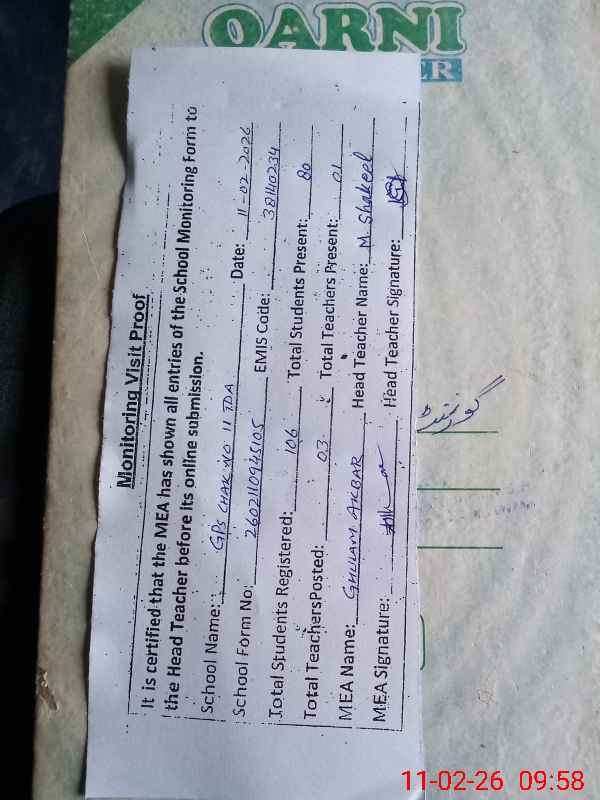 OARNI
ER
Monitoring Visit Proof
It is certified that the MEA has shown all entries of the School Monitoring Form to
the Head Teacher before its online submission.
School Name: GPS CHAK NO 11 TDA Date: 11-02-2026
School Form No: 2602110945105 EMIS Code: 38140234
Total Students Registered: 106 Total Students Present: 80
Total TeachersPosted: 03 Total Teachers Present: 01
MEA Name: GHULAM AKBAR Head Teacher Name: M. Shakeel
MEA Signature: Head Teacher Signature:
گورنمنٹ
11-02-26 09:58